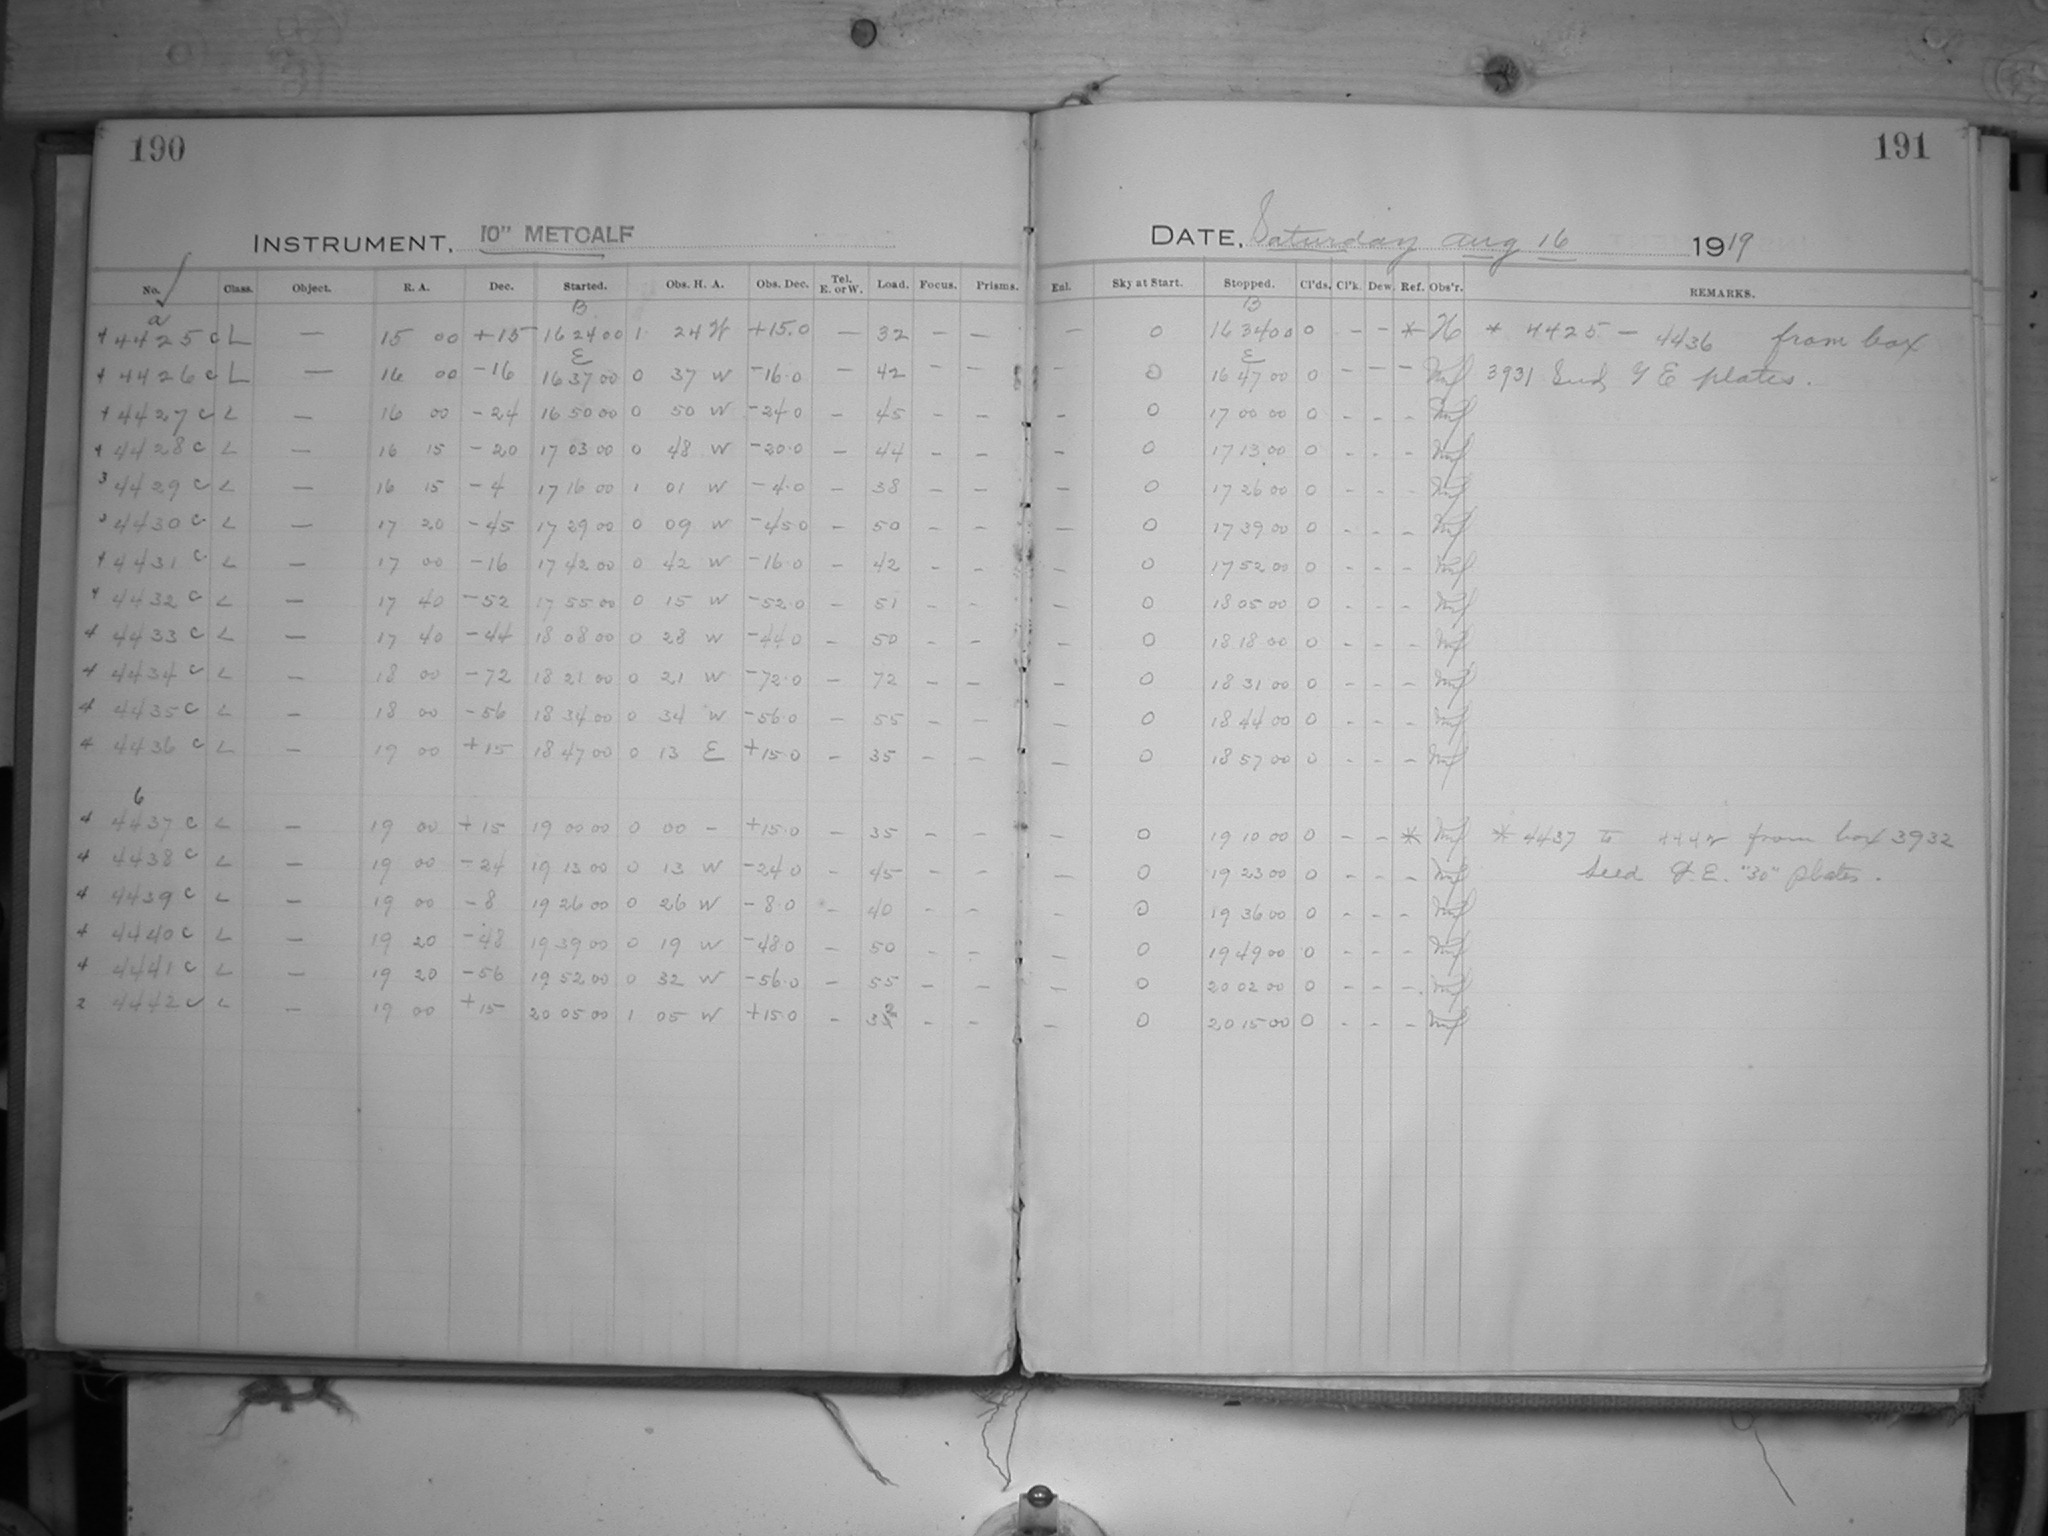 190
191
INSTRUMENT, 10" METCALF
DATE, Saturday Aug 16 1919
No. Class. Object. R. A. Dec. Started. Obs. H. A. Obs. Dec. Tel. E. or W. Load. Focus. Prisms. Enl. Sky at Start. Stopped. Cl'ds. Cl'k. Dew. Ref. Obs'r. REMARKS.
a B B
4 4425 c L — 15 00 +15 16 24 00 1 24 W +15.0 — 32 — — — 0 16 34 00 0 - - * H * 4425 — 4436 from box
E E
4 4426 c L — 16 00 -16 16 37 00 0 37 W -16.0 — 42 — — — 0 16 47 00 0 - - - 3931 Seed G E plates.
4 4427 c L — 16 00 -24 16 50 00 0 50 W -24.0 — 45 — — — 0 17 00 00 0 - - -
4 4428 c L — 16 15 -20 17 03 00 0 48 W -20.0 — 44 — — — 0 17 13 00 0 - - -
3 4429 c L — 16 15 -4 17 16 00 1 01 W -4.0 — 38 — — — 0 17 26 00 0 - - -
3 4430 c L — 17 20 -45 17 29 00 0 09 W -45.0 — 50 — — — 0 17 39 00 0 - - -
4 4431 c L — 17 00 -16 17 42 00 0 42 W -16.0 — 42 — — — 0 17 52 00 0 - - -
4 4432 c L — 17 40 -52 17 55 00 0 15 W -52.0 — 51 — — — 0 18 05 00 0 - - -
4 4433 c L — 17 40 -44 18 08 00 0 28 W -44.0 — 50 — — — 0 18 18 00 0 - - -
4 4434 c L — 18 00 -72 18 21 00 0 21 W -72.0 — 72 — — — 0 18 31 00 0 - - -
4 4435 c L — 18 00 -56 18 34 00 0 34 W -56.0 — 55 — — — 0 18 44 00 0 - - -
4 4436 c L — 19 00 +15 18 47 00 0 13 E +15.0 — 35 — — — 0 18 57 00 0 - - -
6
4 4437 c L — 19 00 +15 19 00 00 0 00 - +15.0 — 35 — — — 0 19 10 00 0 - - * * 4437 to 4442 from box 3932
4 4438 c L — 19 00 -24 19 13 00 0 13 W -24.0 — 45 — — — 0 19 23 00 0 - - - Seed G.E. "30" plates.
4 4439 c L — 19 00 -8 19 26 00 0 26 W -8.0 — 40 — — — 0 19 36 00 0 - - -
4 4440 c L — 19 20 -48 19 39 00 0 19 W -48.0 — 50 — — — 0 19 49 00 0 - - -
4 4441 c L — 19 20 -56 19 52 00 0 32 W -56.0 — 55 — — — 0 20 02 00 0 - - -
2 4442 c L — 19 00 +15 20 05 00 1 05 W +15.0 — 32 — — — 0 20 15 00 0 - - -